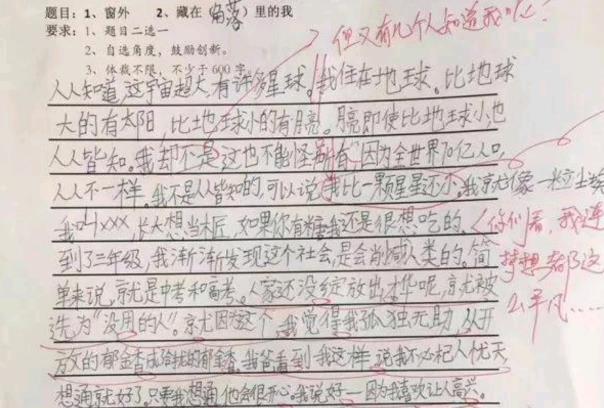 题目：1、窗外　2、藏在（角落）里的我
要求：1、题目二选一
2、自选角度，鼓励创新。
3、体裁不限，不少于 600 字。
但又有几个人知道我呢？
人人知道，这宇宙超大，有许多星球。我住在地球。比地球
大的有太阳，比地球小的有月亮。月亮即使比地球小，也
人人皆知。我却不是，这也不能怪别人，因为全世界70亿人口，
人人不一样。我不是人人皆知的，可以说我比一颗星星还小。我就像一粒尘埃
我叫xxx，长大想当木匠，如果你有糖我还是很想吃的。
（你们看，我连
到了三年级，我渐渐发现这个社会，是会消灭人类的。简
梦想都这
单来说，就是中考和高考。人家还没绽放出才华呢，就被
么平凡……
选为“没用的人”。就因为这个，我觉得我孤独无助，从开
放的郁金香成给我的郁金香。我爸看到我这样，说我不必杞人忧天，
想通就好了。只要我想通，他会很开心。我说好——因为我喜欢让人高兴。